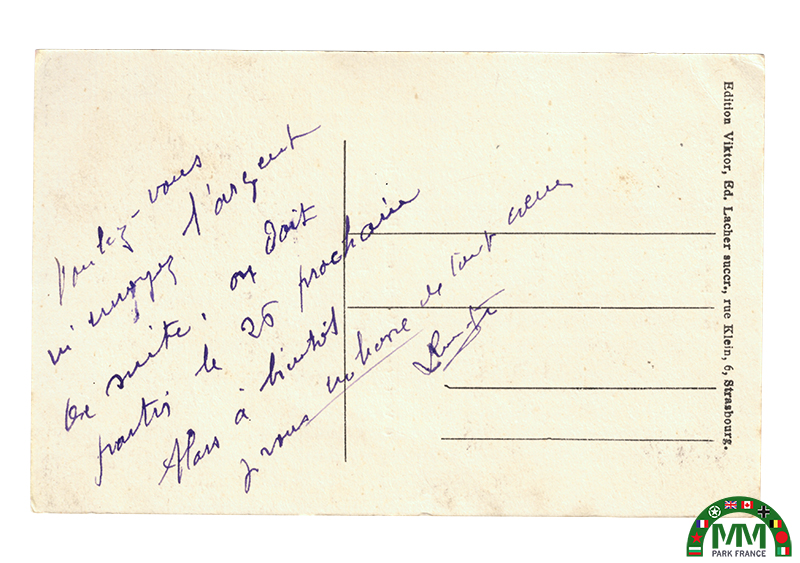 Voulez-vous
m'envoyez l'argent
de suite, on doit
partir le 26 prochain
Alors à bientôt
je vous embrasse de tout coeur
Edition Viktor, Ed. Lacher succr., rue Klein, 6, Strasbourg.
MM
PARK FRANCE